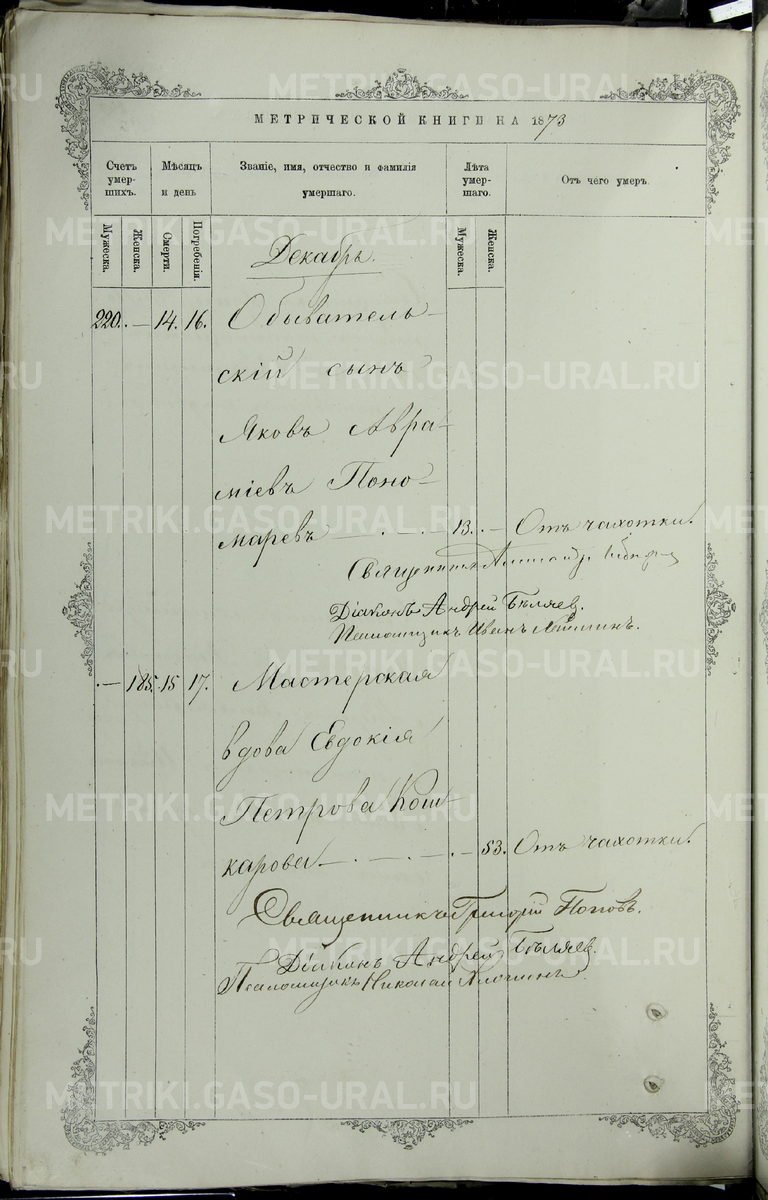 МЕТРИЧЕСКОЙ КНИГИ НА 1873
Счетъ умер- шихъ.
Мѣсяцъ и день
Званіе, имя, отчество и фамилія умершаго.
Лѣта умер- шаго.
Отъ чего умеръ.
Мужеска.
Женска.
Смерти.
Погребенія.
Мужеска.
Женска.
Декабрь.
220. — 14. 16. Обыватель-
скій сынъ
Яковъ Авра-
міевъ Поно-
маревъ 13. — Отъ чахотки.
Священникъ
Діаконъ Андрей Бѣляев.
Псаломщикъ Иванъ
— 185. 15 17. Мастерская
вдова Евдокія
Петрова Кош-
карова — 53. Отъ чахотки.
Священникъ Григорій Поповъ.
Діаконъ Андрей Бѣляев.
Псаломщикъ Николай
METRIKI.GASO-URAL.RU